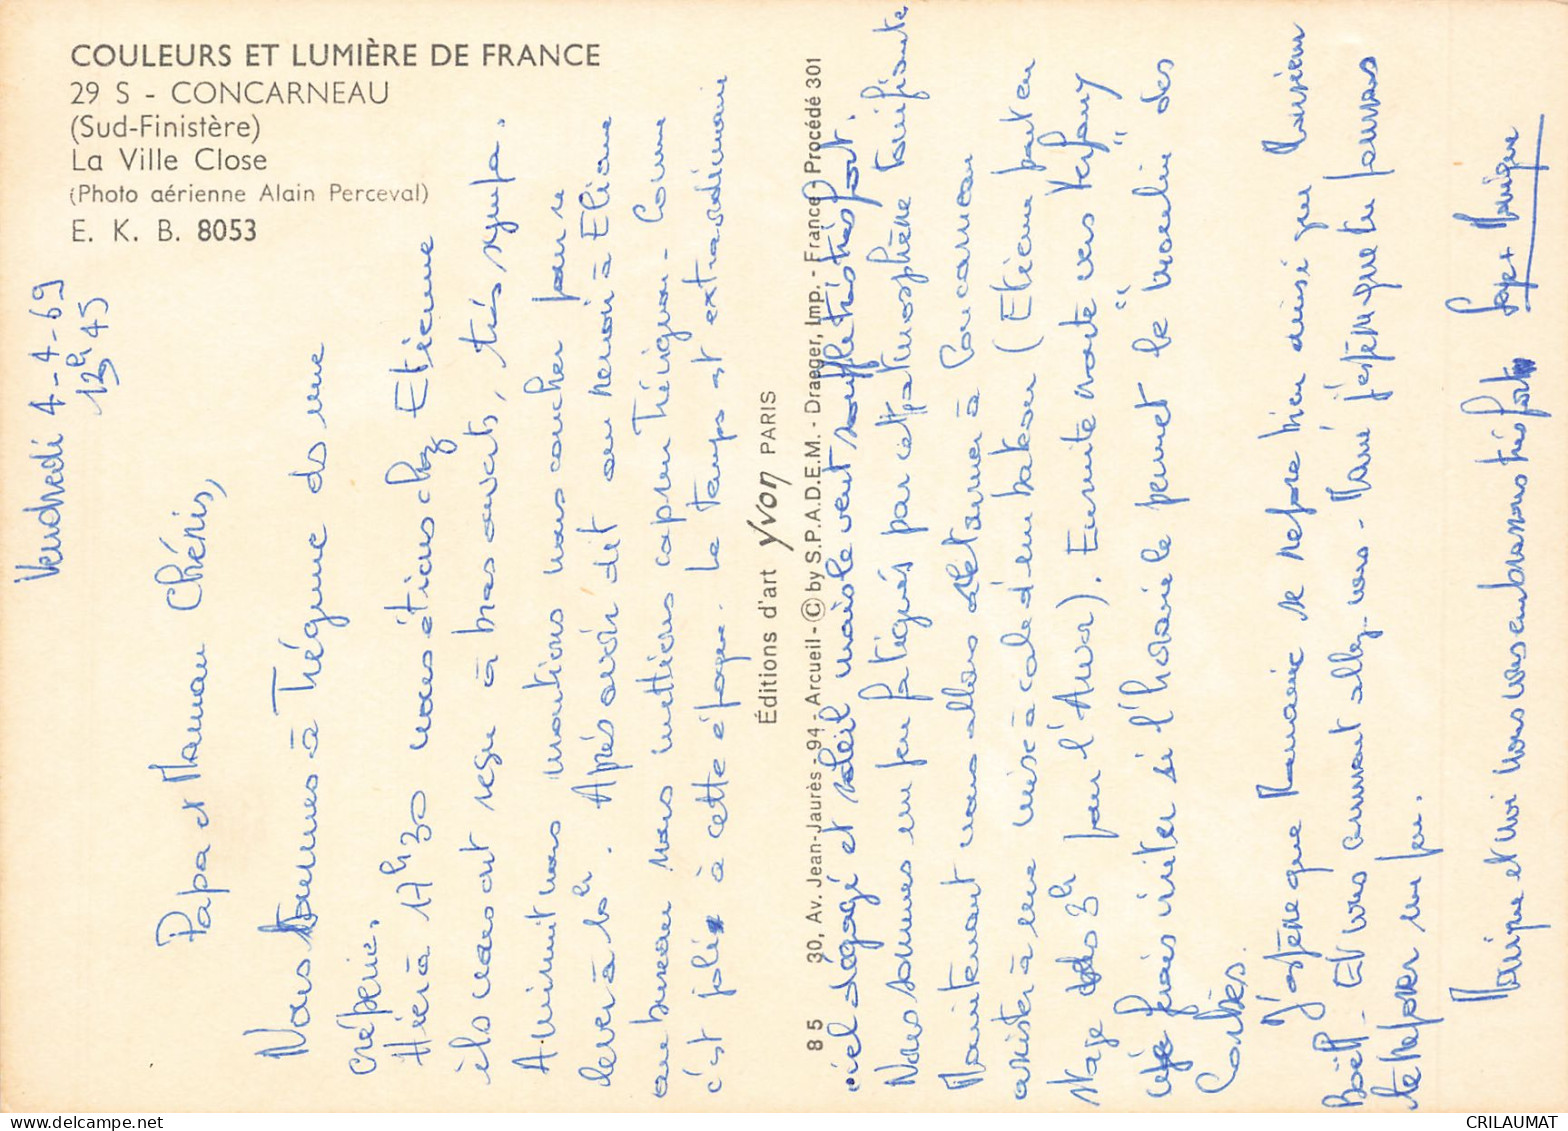 COULEURS ET LUMIÈRE DE FRANCE
29 S - CONCARNEAU
(Sud-Finistère)
La Ville Close
(Photo aérienne Alain Perceval)
E. K. B. 8053
Vendredi 4-4-69
12h45
Papa et Maman Chéris,
Nous sommes à Trégunc ds une
crêperie.
Hier à 17h30 nous étions chez Etienne
ils nous ont reçu à bras ouverts, très sympa.
A minuit nous montions nous coucher pour se
lever à 10h. Après avoir dit au revoir à Eliane
au bureau nous mettions cap sur Trégunc - Comme
c'est joli à cette époque. Le temps est extraordinaire
ciel dégagé et soleil mais le vent souffle très très fort.
Nous sommes un peu fatigués par cette atmosphère tonifiante
Maintenant nous allons retourner à Concarneau
assister à une mise à cale d'un bateau (Etienne part en
stage ds 3h pour l'Awa). Ensuite route vers Kerfany
que je ferais visiter si l'horaire le permet le "moulin" des
J'espère que Mamie se repose bien ainsi que Monsieur
Boëff - Et vous comment allez-vous - Mamé j'espère que tu pourras
te reposer un peu.
Monique et moi nous vous embrassons très fort
Serge + Monique
Éditions d'art yvon PARIS
85 30, Av. Jean-Jaurès - 94 - Arcueil - © by S.P.A.D.E.M. - Draeger, Imp. - France - Procédé 301
www.delcampe.net
CRILAUMAT